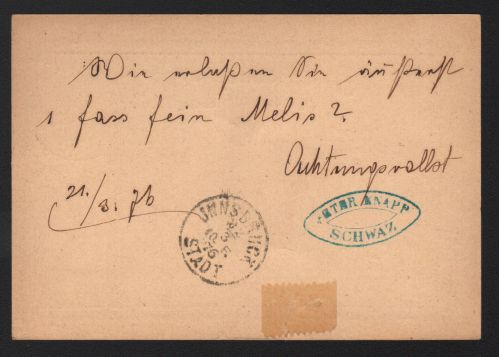 Wie erlaßen Sie äußerst
1 fass fein Melis?
Achtungsvollst
21./3. 76
INNSBRUCK
STADT
PETER KNAPP
SCHWAZ